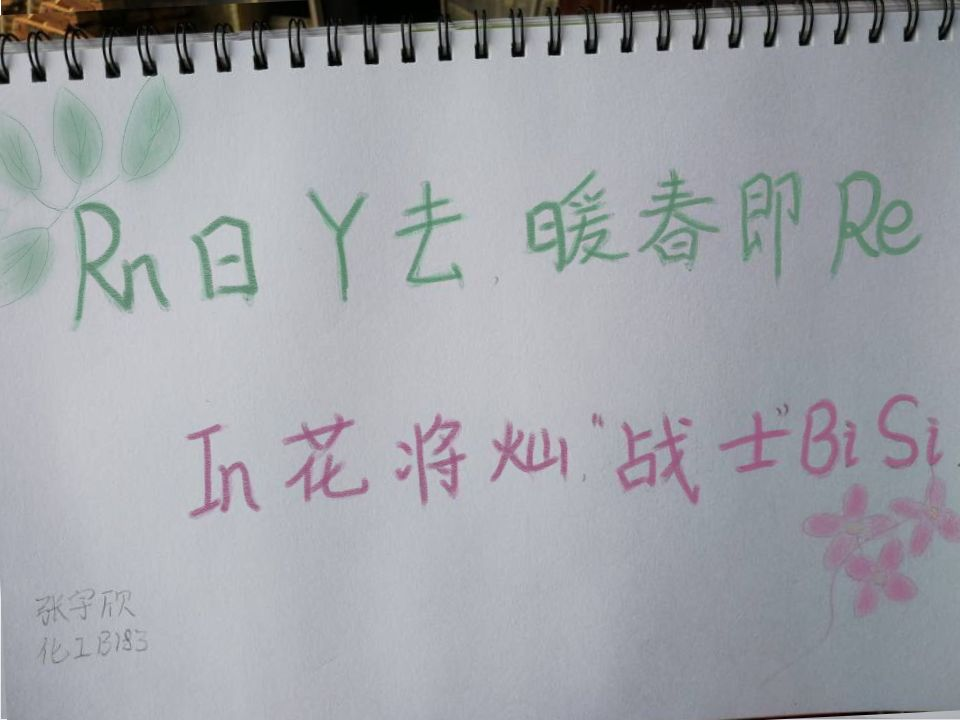 Rn日Y去,暖春即Re
In花将灿,"战士"BiSi.
张宇欣
化工B183